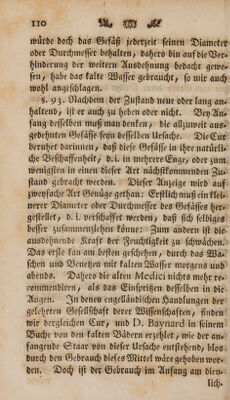 110
würde doch das Gefäß jederzeit seinen Diameter
oder Durchmesser behalten, dahero bin auf die Ver-
hinderung der weitern Ausdehnung bedacht gewe-
sen, habe das kalte Wasser gebraucht, so mir auch
wohl angeschlagen.
§. 93. Nachdem der Zustand neue oder lang an-
haltend, ist er auch zu heben oder nicht. Bey An-
fang desselben muß man denken, die allzuweit aus-
gedehnten Gefässe seyn desselben Ursache. Die Cur
beruhet darinnen, daß diese Gefässe in ihre natürli-
che Beschaffenheit, d.i. in mehrere Enge, oder zum
wenigsten in einen dieser Art nächstkommenden Zu-
stand gebracht werden. Dieser Anzeige wird auf
zweyerley Art Genüge gethan: Erstlich muß ein klei-
nerer Diameter oder Durchmesser des Gefässes her-
gestellet, d. i. verschaffet werden, daß sich selbiges
besser zusammenziehen könne: Zum andern ist die
ausdehnende Kraft der Feuchtigkeit zu schwächen.
Das erste kan am besten geschehen, durch das Wa-
schen und Benetzen mit kalten Wasser morgens und
abends. Dahero die alten Medici nichts mehr re-
commendiren, als das Einspritzen desselben in die
Augen. In denen engelländischen Handlungen der
gelehrten Gesellschaft derer Wissenschaften, finden
wir dergleichen Cur, und D. Baynard in seinem
Buch von den kalten Bädern erzehlet, wie der an-
fangende Staar von dieser Ursache entstehend, blos
durch den Gebrauch dieses Mittel wäre gehoben wor-
den. Doch ist der Gebrauch im Anfang am dien-
lich-